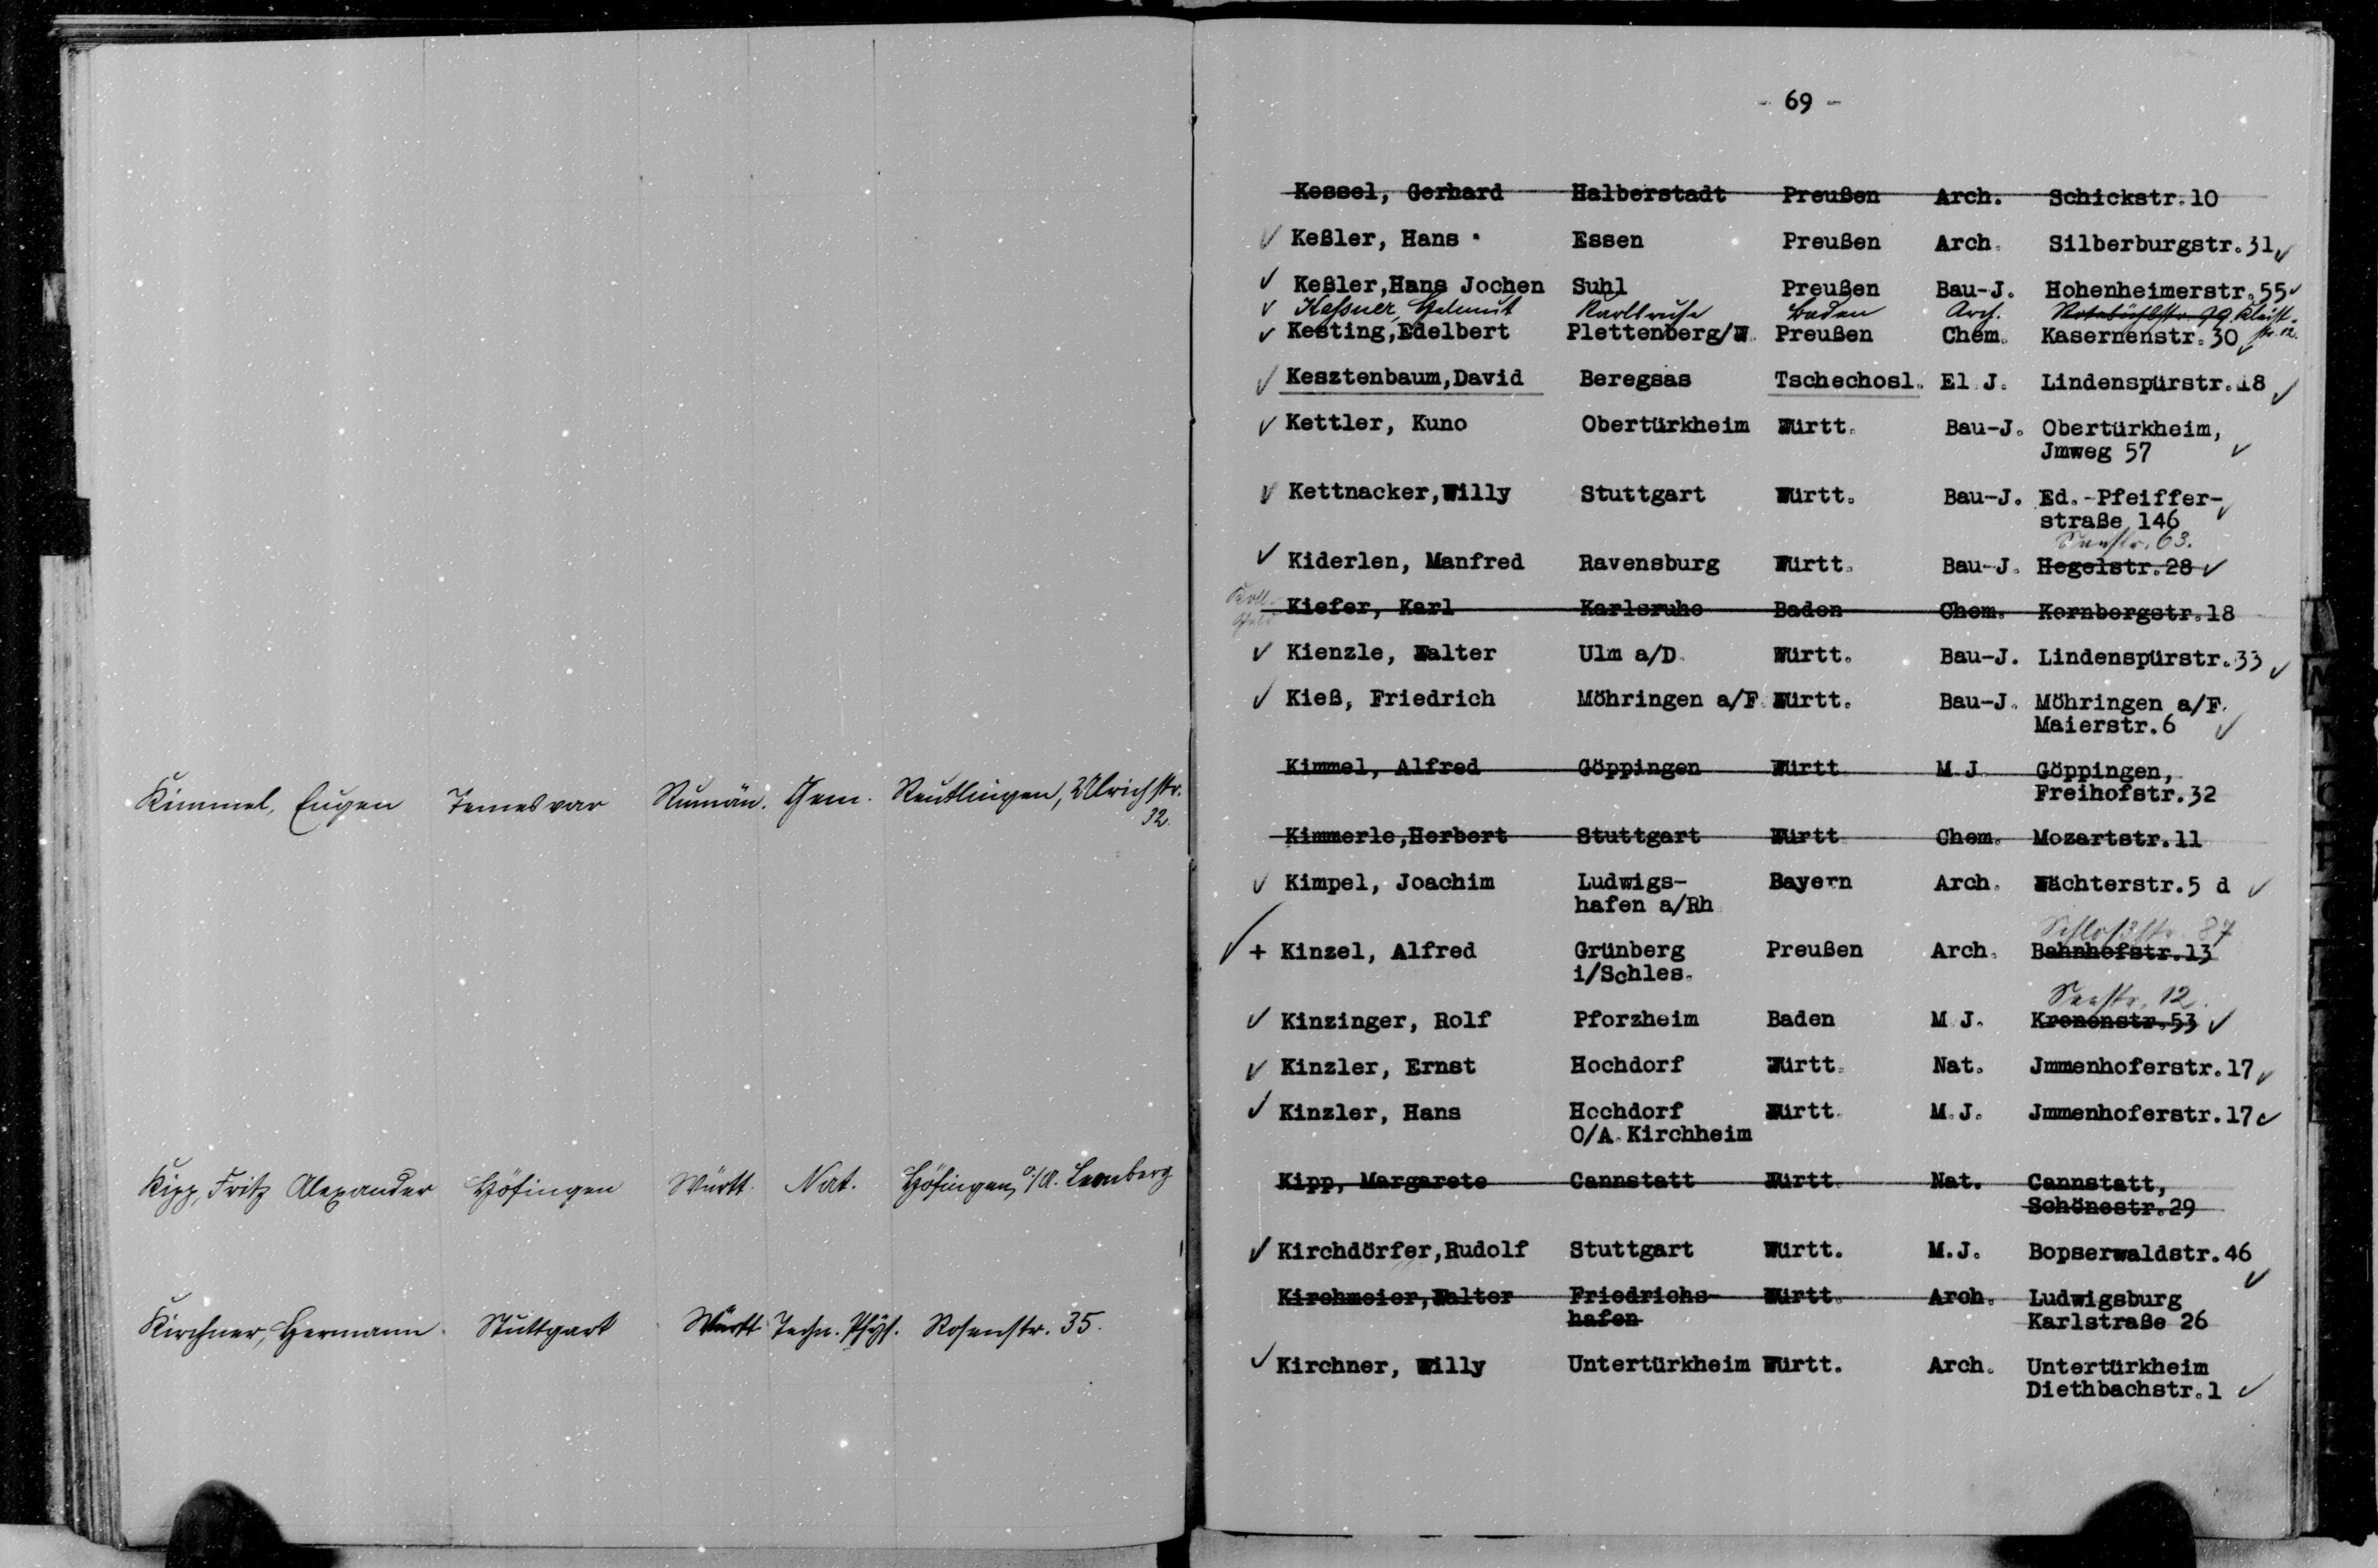 Kimmel, Eugen Temesvar Rumän. Chem. Reutlingen, Ulrichstr.
32.
Kipp, Fritz Alexander Höfingen Württ. Nat. Höfingen, O/A. Leonberg
Kirchner, Hermann Stuttgart Württ Techn. Phys. Rosenstr. 35.
- 69 -
Kessel, Gerhard Halberstadt Preußen Arch. Schickstr.10
Keßler, Hans Essen Preußen Arch. Silberburgstr.31
Keßler,Hans Jochen Suhl Preußen Bau-J. Hohenheimerstr.55
Kessner, Helmut Karlsruhe Baden Arch. Rotebühlstr. 99 Kleist-
str. 12.
Kesting,Edelbert Plettenberg/W. Preußen Chem. Kasernenstr.30
Kesztenbaum,David Beregsas Tschechosl. El.J. Lindenspürstr.18
Kettler, Kuno Obertürkheim Württ. Bau-J. Obertürkheim,
Jmweg 57
Kettnacker,Willy Stuttgart Württ. Bau-J. Ed.-Pfeiffer-
straße 146
Seestr. 63.
Kiderlen, Manfred Ravensburg Württ. Bau-J. Hegelstr.28
Kiefer, Karl Karlsruhe Baden Chem. Kornbergstr.18
Kienzle, Walter Ulm a/D. Württ. Bau-J. Lindenspürstr.33
Kieß, Friedrich Möhringen a/F. Württ. Bau-J. Möhringen a/F.
Maierstr.6
Kimmel, Alfred Göppingen Württ. M.J. Göppingen,
Freihofstr.32
Kimmerle,Herbert Stuttgart Württ. Chem. Mozartstr.11
Kimpel, Joachim Ludwigs- Bayern Arch. Wächterstr.5 d
hafen a/Rh.
Schloßstr. 87
+ Kinzel, Alfred Grünberg Preußen Arch. Bahnhofstr.13
i/Schles.
Seestr. 12.
Kinzinger, Rolf Pforzheim Baden M.J. Kronenstr.53
Kinzler, Ernst Hochdorf Württ. Nat. Jmmenhoferstr.17
Kinzler, Hans Hochdorf Württ. M.J. Jmmenhoferstr.17
O/A.Kirchheim
Kipp, Margarete Cannstatt Württ. Nat. Cannstatt,
Schönestr.29
Kirchdörfer,Rudolf Stuttgart Württ. M.J. Bopserwaldstr.46
Kirchmeier,Walter Friedrichs- Württ. Arch. Ludwigsburg
hafen Karlstraße 26
Kirchner, Willy Untertürkheim Württ. Arch. Untertürkheim
Diethbachstr.1